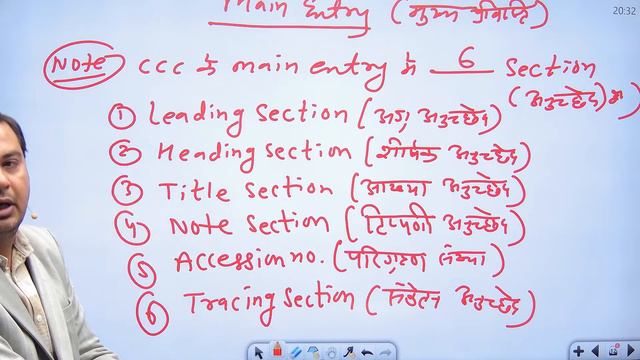 20:32
Main Entry (मुख्य प्रविष्टि)
Note CCC के main entry में 6 Section
(अनुच्छेद)
① Leading section (अग्र अनुच्छेद)
② Heading section (शीर्षक अनुच्छेद
③ Title section (आख्या अनुच्छेद
④ Note Section (टिप्पणी अनुच्छेद)
⑤ Accession no. (परिग्रहण संख्या)
⑥ Tracing section (संकेतन अनुच्छेद)